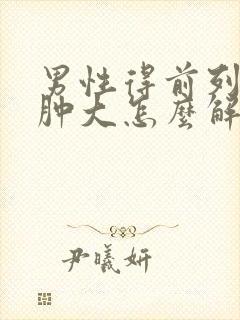 男性得前列
肿大怎麼解
尹曦妍